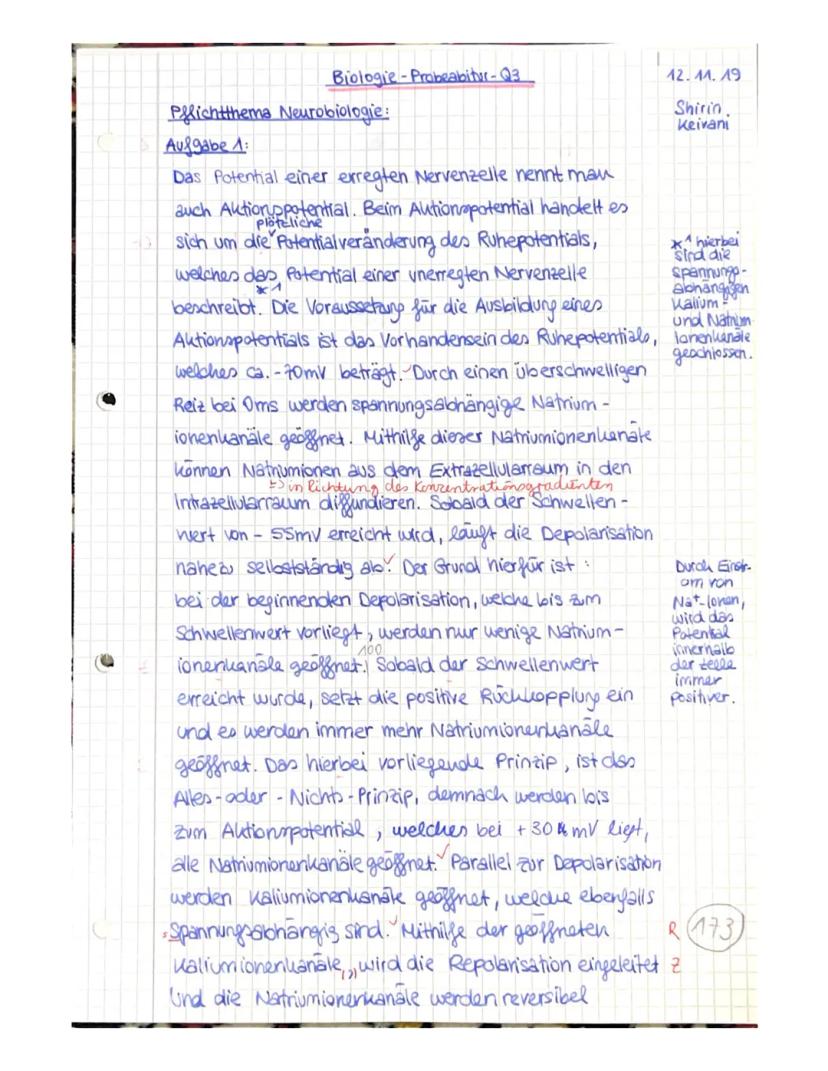 Biologie-Probeabitur-Q3
12.11.19
Shirin
Keivani
Pflichtthema Neurobiologie:
Aufgabe 1:
Das Potential einer erregten Nervenzelle nennt man
auch Aktionspotential. Beim Aktionspotential handelt es
plötzliche
sich um die Potentialveränderung des Ruhepotentials,
welches das Potential einer unerregten Nervenzelle
*1
beschreibt. Die Voraussetzung für die Ausbildung eines
Aktionspotentials ist das Vorhandensein des Ruhepotentials,
welches ca. -70mV beträgt. Durch einen überschwelligen
Reiz bei 0ms werden spannungsabhängige Natrium-
ionenkanäle geöffnet. Mithilfe dieser Natriumionenkanäle
können Natriumionen aus dem Extrazellularraum in den
↳ in Richtung des Konzentrationsgradienten
Intrazellularraum diffundieren. Sobald der Schwellen-
wert von - 55mV erreicht wird, läuft die Depolarisation
nahezu selbstständig ab. Der Grund hierfür ist :
bei der beginnenden Depolarisation, welche bis zum
Schwellenwert vorliegt, werden nur wenige Natrium-
100
ionenkanäle geöffnet. Sobald der Schwellenwert
erreicht wurde, setzt die positive Rückkopplung ein
und es werden immer mehr Natriumionenkanäle
geöffnet. Das hierbei vorliegende Prinzip, ist das
Alles-oder-Nichts-Prinzip, demnach werden bis
zum Aktionspotential, welches bei +30 mV liegt,
alle Natriumionenkanäle geöffnet. Parallel zur Depolarisation
werden Kaliumionenkanäle geöffnet, welche ebenfalls
Spannungsabhängig sind. Mithilfe der geöffneten
Kaliumionenkanäle, wird die Repolarisation eingeleitet
Und die Natriumionenkanäle werden reversibel
*1 hierbei
sind die
spannungs-
abhängigen
Kalium-
und Natrium
Ionenkanäle
geschlossen.
Durch Einstr-
om von
Na+-Ionen,
wird das
Potential
innerhalb
der Zelle
immer
positiver.
R 173
Z